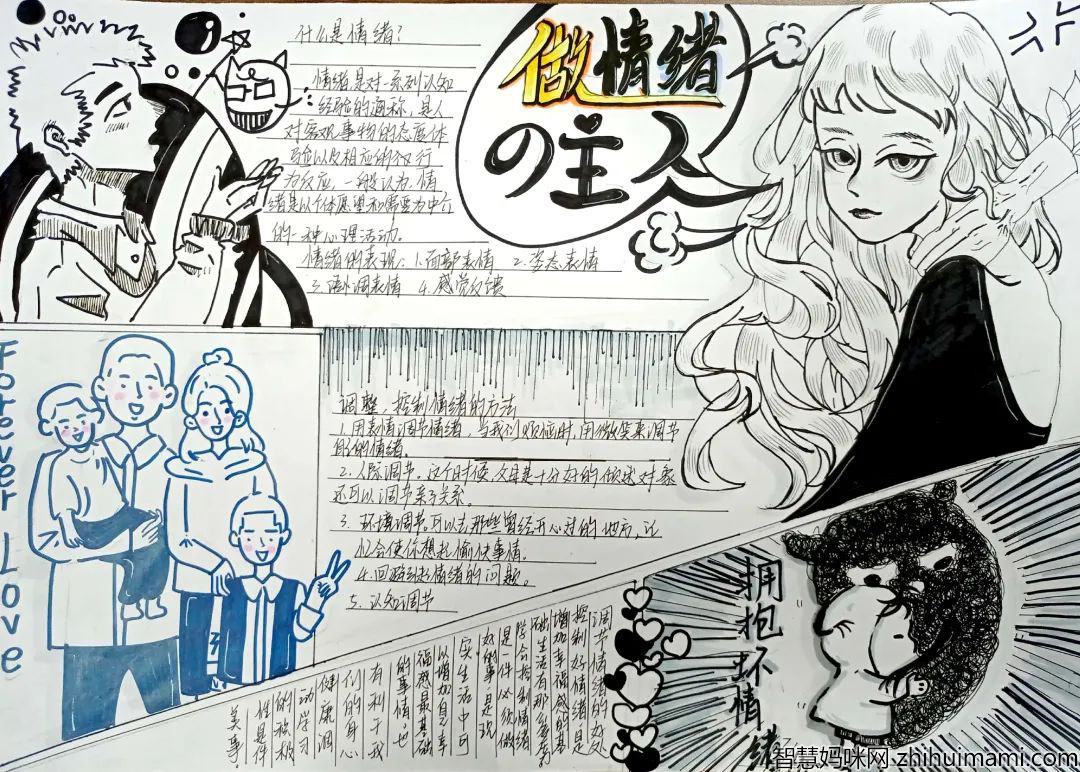 做情绪
の主人
什么是情绪?
情绪是对一系列认知
经验的通称，是人
对客观事物的态度体
验以及相应的行
为反应，一般认为，情
绪是以个体愿望和需要为中介
的一种心理活动。
情绪的表现：1.面部表情 2.姿态表情
3.语调表情 4.感觉反馈
Forever Love
调整，控制情绪的方法
1.用表情调节情绪，当我们烦恼时，用微笑来调节
自的情绪。
2.人际调节，这个时候父母是十分好的倾述对象
还可以调节亲子关系。
3.环境调节可以去那些曾经开心过的地方，记
忆会使你想起愉快事情。
4.回避引起情绪的问题。
5.认知调节
调节情绪的好处
控制好情绪是
增加幸福感的基
础生活有那么多
学会控制情绪
是一件必须做
好的事，是现
实生活中可
以增加自己幸
福感最基础
的事情也
有利于我
们的身心
健康调
动学习
的积极
性是件
美事。
拥抱坏情绪
智慧妈咪网 zhihuimami.com